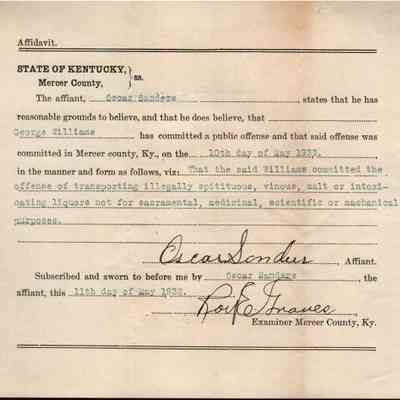 Affidavit.
STATE OF KENTUCKY, } ss.
Mercer County,
The affiant, Oscar Sanders states that he has
reasonable grounds to believe, and that he does believe, that
George Williams has committed a public offense and that said offense was
committed in Mercer county, Ky., on the 10th day of May 1932.
in the manner and form as follows, viz: That the said Williams committed the
offense of transporting illegally spitituous, vinous, malt or intoxi-
cating liquors not for sacramental, medicinal, scientific or mechanical
purposes.
Oscar Sonders, Affiant.
Subscribed and sworn to before me by Oscar Sanders, the
affiant, this 11th day of May 1932.
Roy E Graves
Examiner Mercer County, Ky.